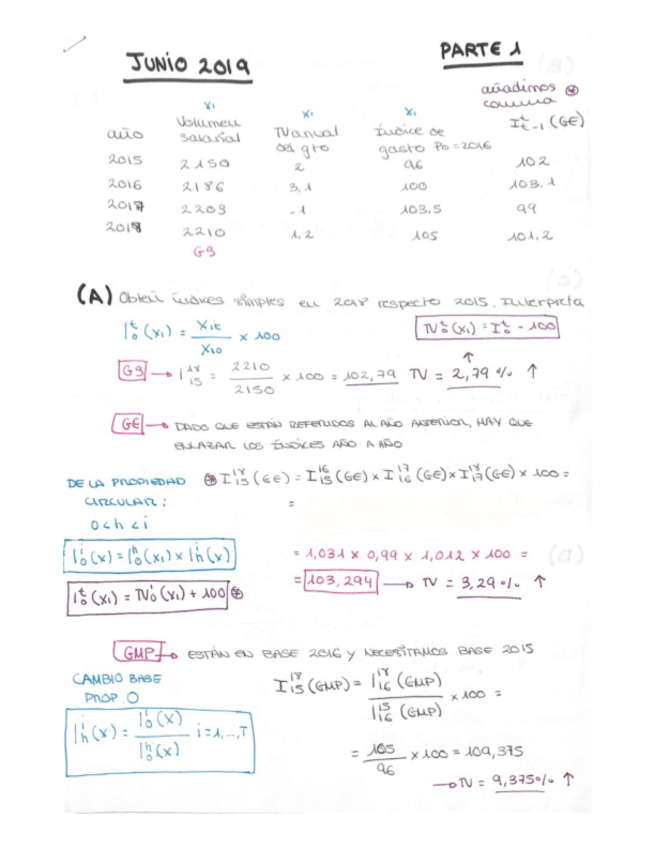 JUNIO 2019
PARTE 1
añadimos
columna
año
X₁ Volumen salarial
X₁ TV anual del gto
X₁ Índice de gasto P₀=2016
Iᵗₜ₋₁ (GE)
2015 2150 2 96 102
2016 2186 3,1 100 103.1
2017 2203 -1 103,5 99
2018 2210 1,2 105 101,2
GS
(A) Obtén índices simples en 2018 respecto 2015. Interpreta
Iᵗ₀(X₁) = X₁t / X₁₀ x 100
TVᵗ₀(X₁) = Iᵗ₀ - 100
GS → I¹⁸₁₅ = 2210 / 2150 x 100 = 102,79 TV = 2,79 % ↑
GE → DADO QUE ESTÁN REFERIDOS AL AÑO ANTERIOR, HAY QUE
ENLAZAR LOS ÍNDICES AÑO A AÑO
DE LA PROPIEDAD
CIRCULAR:
0<h<i
I¹⁸₁₅(GE) = I¹⁶₁₅(GE) x I¹⁷₁₆(GE) x I¹⁸₁₇(GE) x 100 =
=
Iⁱ₀(x) = Iʰ₀(x₁) x Iⁱh(x)
= 1,031 x 0,99 x 1,012 x 100 =
Iᵗ₀(X₁) = TVⁱ₀(X₁) + 100
= 103,294 → TV = 3,29 % ↑
GMP → ESTÁN EN BASE 2016 Y NECESITAMOS BASE 2015
CAMBIO BASE
PROP. O
I¹⁸₁₅(GMP) = I¹⁸₁₆(GMP) / I¹⁵₁₆(GMP) x 100 =
Iⁱh(x) = Iⁱ₀(x) / Iʰ₀(x) i=1,...,T
= 105 / 96 x 100 = 109,375
→ TV = 9,375% ↑